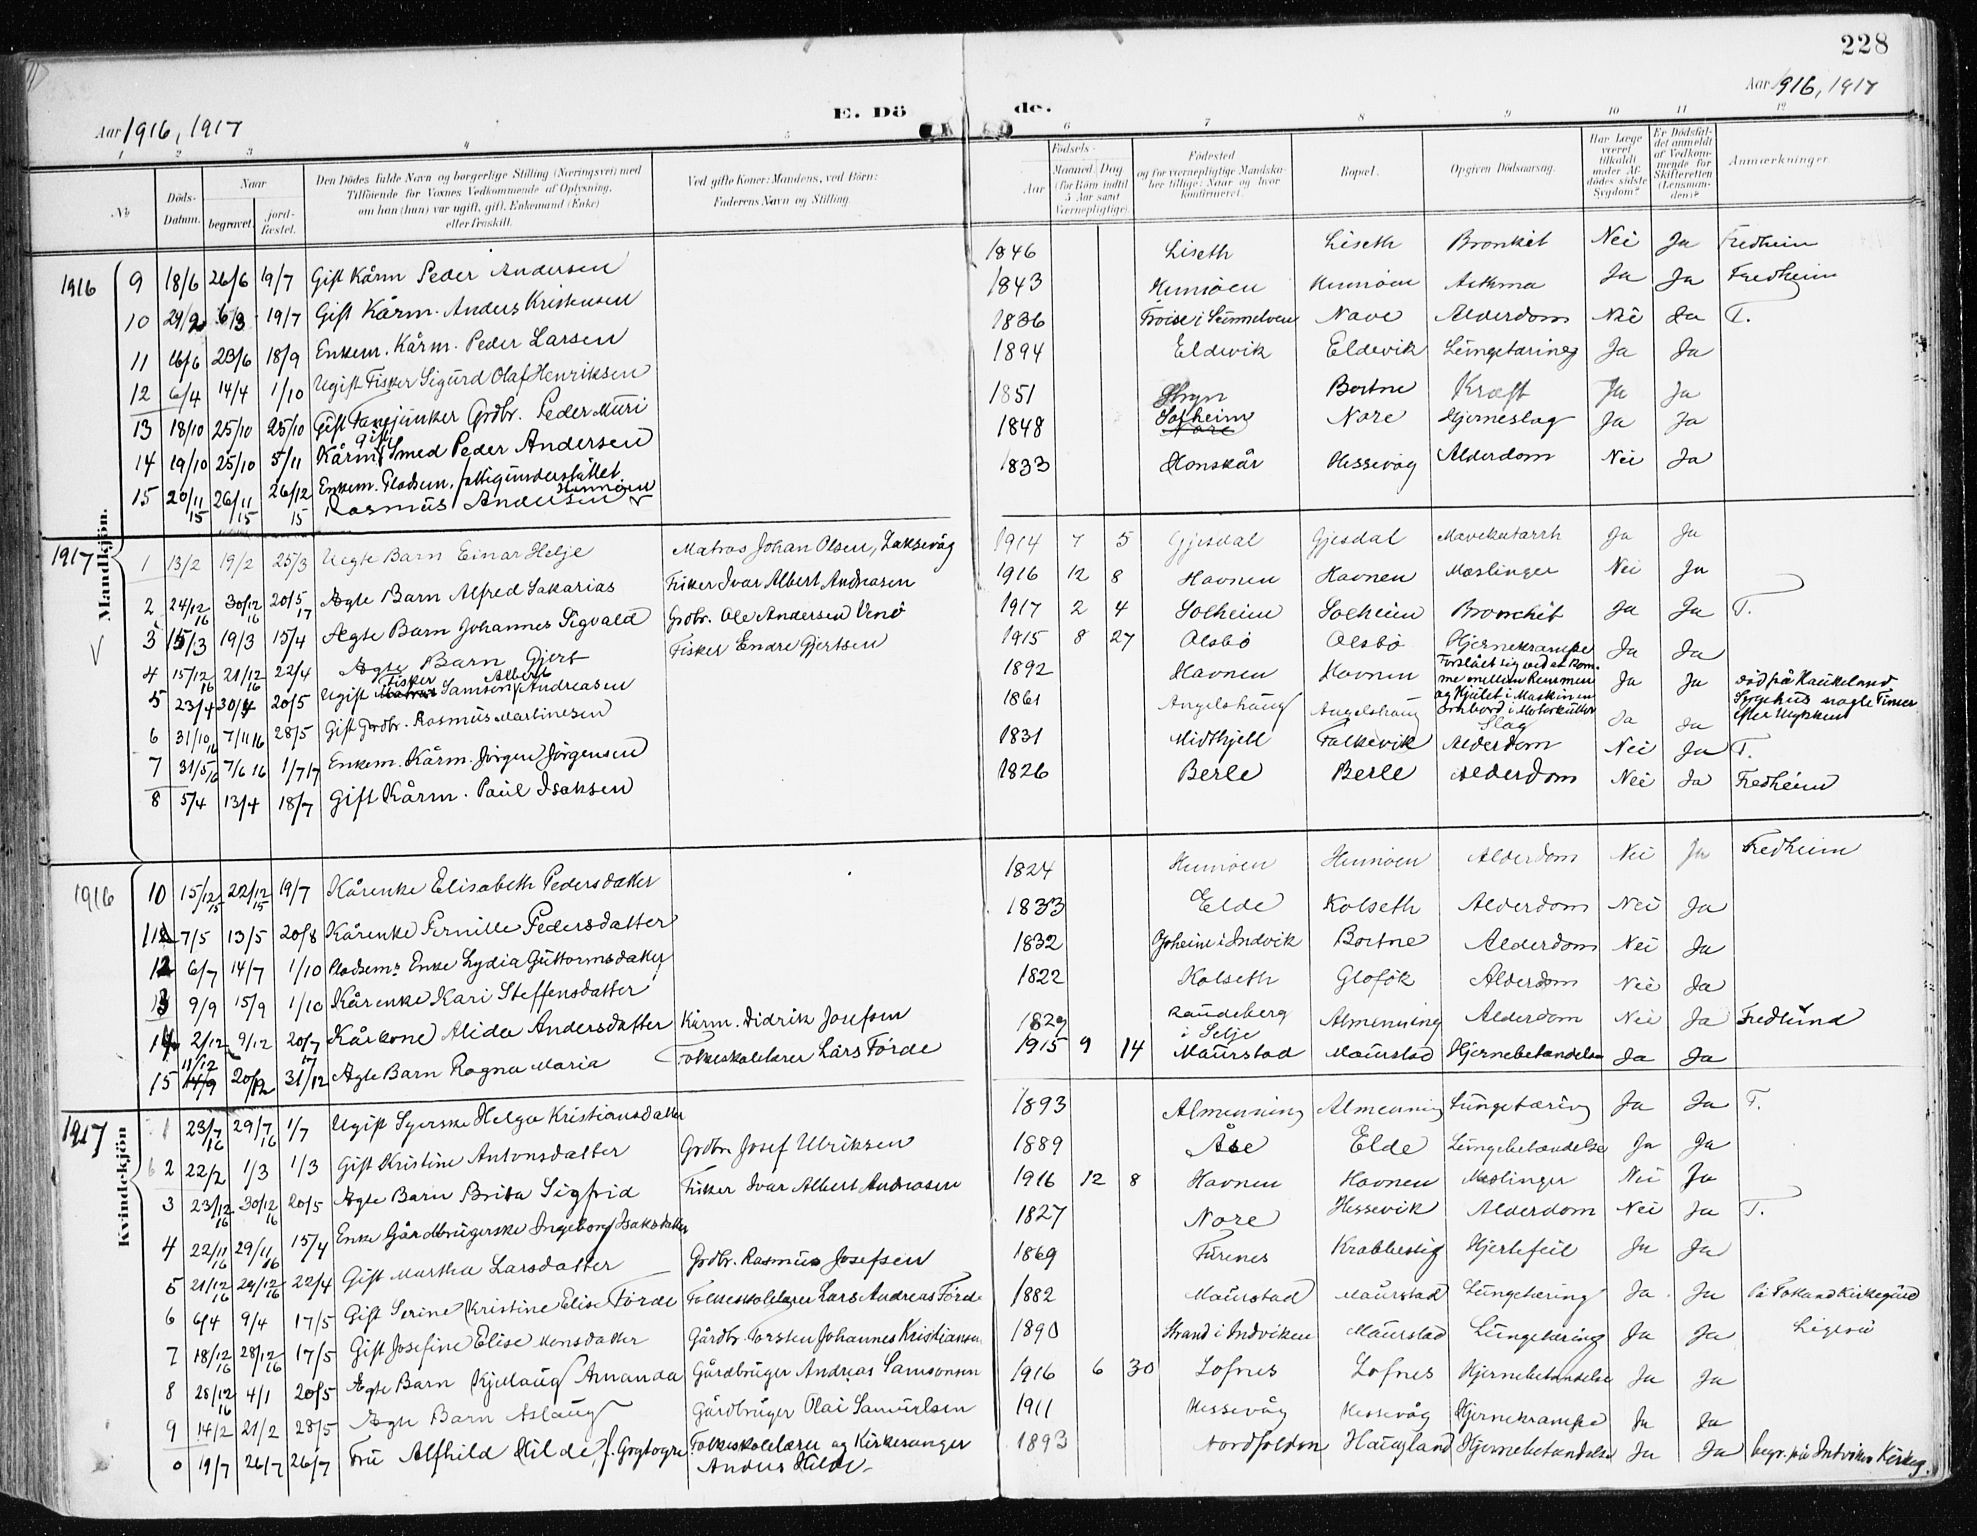 228
Aar 1916, 1917 E. Dö de. Aar 1916, 1917
1 2 3 4 5 6 7 8 9 10 11 12
No Döds-Datum. Naar begravet jord-fæstet. Den Dödes fulde Navn og borgerlige Stilling (Næringsvei) med Tilföiende for Voxnes Vedkommende af Oplysning, om han (hun) var ugift, gift, Enkemand (Enke) eller fraskilt. Ved gifte Koner: Mandens, ved Börn: Faderens Navn og Stilling. Födsels- Aar Maaned Dag (for Börn indtil 5 Aar samt Værnepligtige). Födested og for værnepligtige Mandskaber tillige: Naar og hvor konfirmeret. Bopæl. Opgiven Dödsaarsag. Har Læge været tilkaldt under Afdödes sidste Sygdom? Er Dödsfaldet anmeldt af Vedkommende for Skifteretten (Lensmanden)? Anmærkninger
1916 Mandkjön.
9 18/6 26/6 19/7 Gift Kårm Peder Andersen 1846 Liseth Liseth Bronkit Nei Ja Fredheim
10 29/2 6/3 19/7 Gift Kårm. Anders Kristensen 1843 Hennöen Hennöen Astma Ja Ja Fredheim
11 16/6 23/6 18/9 Enkem. Kårm. Peder Larsen 1836 Nave Alderdom Nei Ja T.
12 6/4 14/4 1/10 Ugift Fisker Sigurd Olaf Henriksen 1894 Eldevik Eldevik Lungetæring Ja Ja
13 18/10 25/10 25/10 Gift Fanejunker Grdbr. Peder Muri 1851 Stryn Bortne Kræft Ja Ja
14 19/10 25/10 5/11 Kårm gift Smed Peder Andersen 1848 Solheim Nore Nore Hjerneslag Ja Ja
15 20/11 15 26/11 15 26/12 15 Enkem. Pladsm. fattigunderstöttet Rasmus Andersen Hennöen 1833 Honskår Hessevåg Alderdom Nei Ja
1917
1 13/2 19/2 25/3 Uegte Barn Einar Helje Matros Johan Olsen, Laksevåg 1914 7 5 Gjesdal Gjesdal Mavekatarrh Ja Ja
2 24/12 16 30/12 16 20/5 17 Ægte Barn Alfred Sakarias Fisker Ivar Albert Andreasen 1916 12 8 Havnen Havnen Mæslinger Nei Ja
3 15/3 19/3 15/4 Ægte Barn Johannes Sigvald Grdbr. Ole Andersen 1917 2 4 Solheim Solheim Bronchit Ja Ja T.
4 15/12 16 21/12 16 22/4 Ægte Barn Gjert Fisker Endre Gjertsen 1915 8 27 Olsbö Olsbö Hjernekrampe Ja Ja
5 23/4 30/4 20/5 Ugift Matros Fisker Samson Albert Andreasen 1892 Havnen Havnen Forslået sig ved at komme mellem Remmen og Hjulet i Maskinen ombord i Motorkutter Ja Ja död på Haukeland Sygehus nogle Timer efter Ulykken
6 31/10 16 7/11 16 28/5 Gift Grdbr. Rasmus Martinesen 1861 Angelshaug Angelshaug Slag Ja Ja
7 31/5 16 7/6 16 1/7 17 Enkem. Kårm. Jörgen Jörgensen 1831 Midthjell Falkevik Alderdom Nei Ja T.
8 5/4 13/4 18/7 Gift Kårm. Paul Isaksen 1826 Berle Berle Alderdom Nei Ja Fredheim
1916 Kvindekjön
10 15/12 15 22/12 15 19/7 Kårenke Elisabeth Pedersdatter 1824 Hennöen Hennöen Alderdom Nei Ja Fredheim
11 7/5 13/5 20/8 Kårenke Pernille Pedersdatter 1833 Elde Kolseth Alderdom Nei Ja
12 6/7 14/7 1/10 Pladsem. Enke Lydia Guttormsdatter 1832 Opheim i Indvik Bortne Alderdom Nei Ja
13 9/9 15/9 1/10 Kårenke Kari Steffensdatter 1822 Kolseth Glofök Alderdom Nei Ja
14 2/12 9/12 20/7 17 Kårkone Alida Andersdatter Kårm. Didrik Josefsen 1829 Raudeberg i Selje Almenning Alderdom Nei Ja Fredlund
15 11/12 14/9 20/12 31/12 Ægte Barn Ragna Maria Folkeskolelærer Lars Förde 1915 9 14 Maurstad Maurstad Hjernebetændelse Ja Ja
1917
1 23/7 16 29/7 16 1/7 Ugift Syerske Helga Kristiansdatter 1893 Almenning Almenning Lungetæring Ja Ja T.
2 22/2 1/3 1/3 Gift Kristine Antonsdatter Grdbr. Josef Ulriksen 1889 Åse Elde Lungebetændelse Ja Ja
3 23/12 16 30/12 16 20/5 Ægte Barn Brita Sigfrid Fisker Ivar Albert Andreasen 1916 12 8 Havnen Havnen Mæslinger Nei Ja
4 22/11 16 29/11 16 15/4 Enke Gårdbrugerske Ingeborg Isaksdatter 1827 Nore Hessevik Alderdom Nei Ja T.
5 21/12 16 29/12 16 22/4 Gift Martha Larsdatter Grdbr. Rasmus Josefsen 1869 Furenes Krabbestig Hjertefeil Ja Ja
6 6/4 9/4 17/5 Gift Serine Kristine Elise Förde Folkeskolelærer Lars Andreas Förde 1882 Maurstad Maurstad Lungetæring Ja Ja På Totland Kirkegård
7 18/12 16 28/12 16 17/5 Gift Josefine Elise Monsdatter Gårdbr. Torsten Johannes Kristiansen 1890 Strand i Indviken Maurstad Lungetæring Ja Ja Ligeså
8 28/12 16 4/1 20/5 Ægte Barn Kjellaug Amanda Gårdbruger Andreas Samsonsen 1916 6 30 Lofnes Lofnes Hjernebetændelse Ja Ja
9 14/2 21/2 28/5 Ægte Barn Aslaug Gårdbruger Olai Samuelsen 1911 Hessevåg Hessevåg Hjernekrampe Ja Ja
0 19/7 26/7 26/7 Fru Alfhild Hilde, f. Folkeskolelærer og Kirkesanger Anders Hilde 1893 Nordfolden Haugland Hjernebetændelse Ja Ja begr. på Indviken Kirkeg.